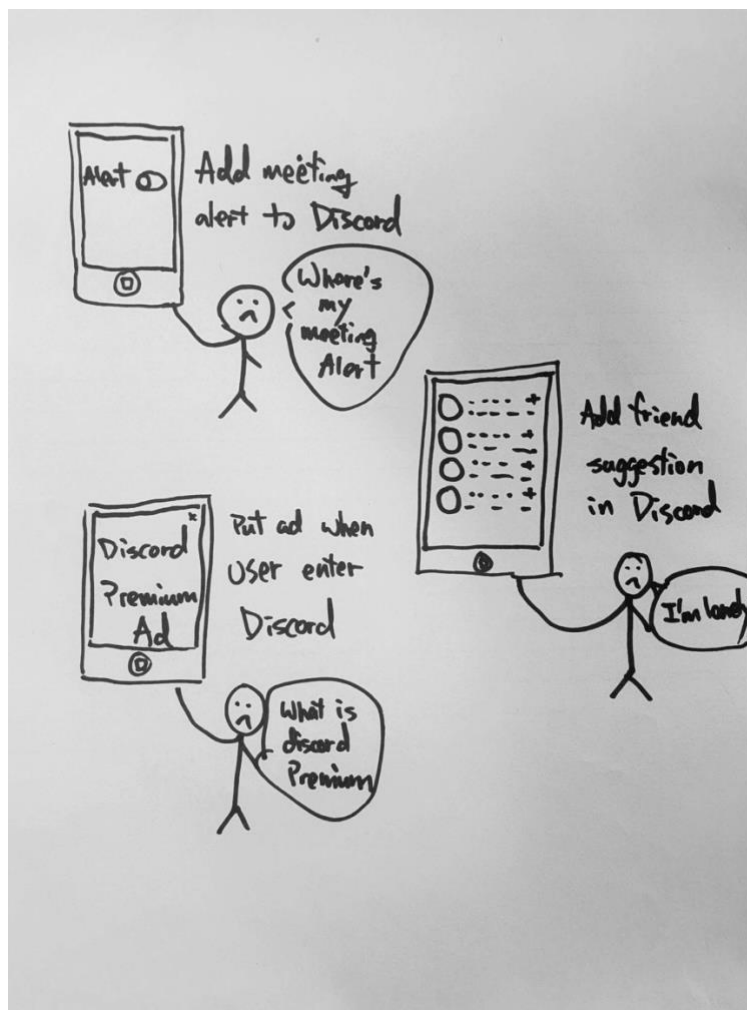 Alert
Add meeting
alert to Discord
Where's
my
meeting
Alert
Add friend
suggestion
in Discord
I'm lonely
x
Discord
Premium
Ad
Put ad when
User enter
Discord
What is
discord
Premium